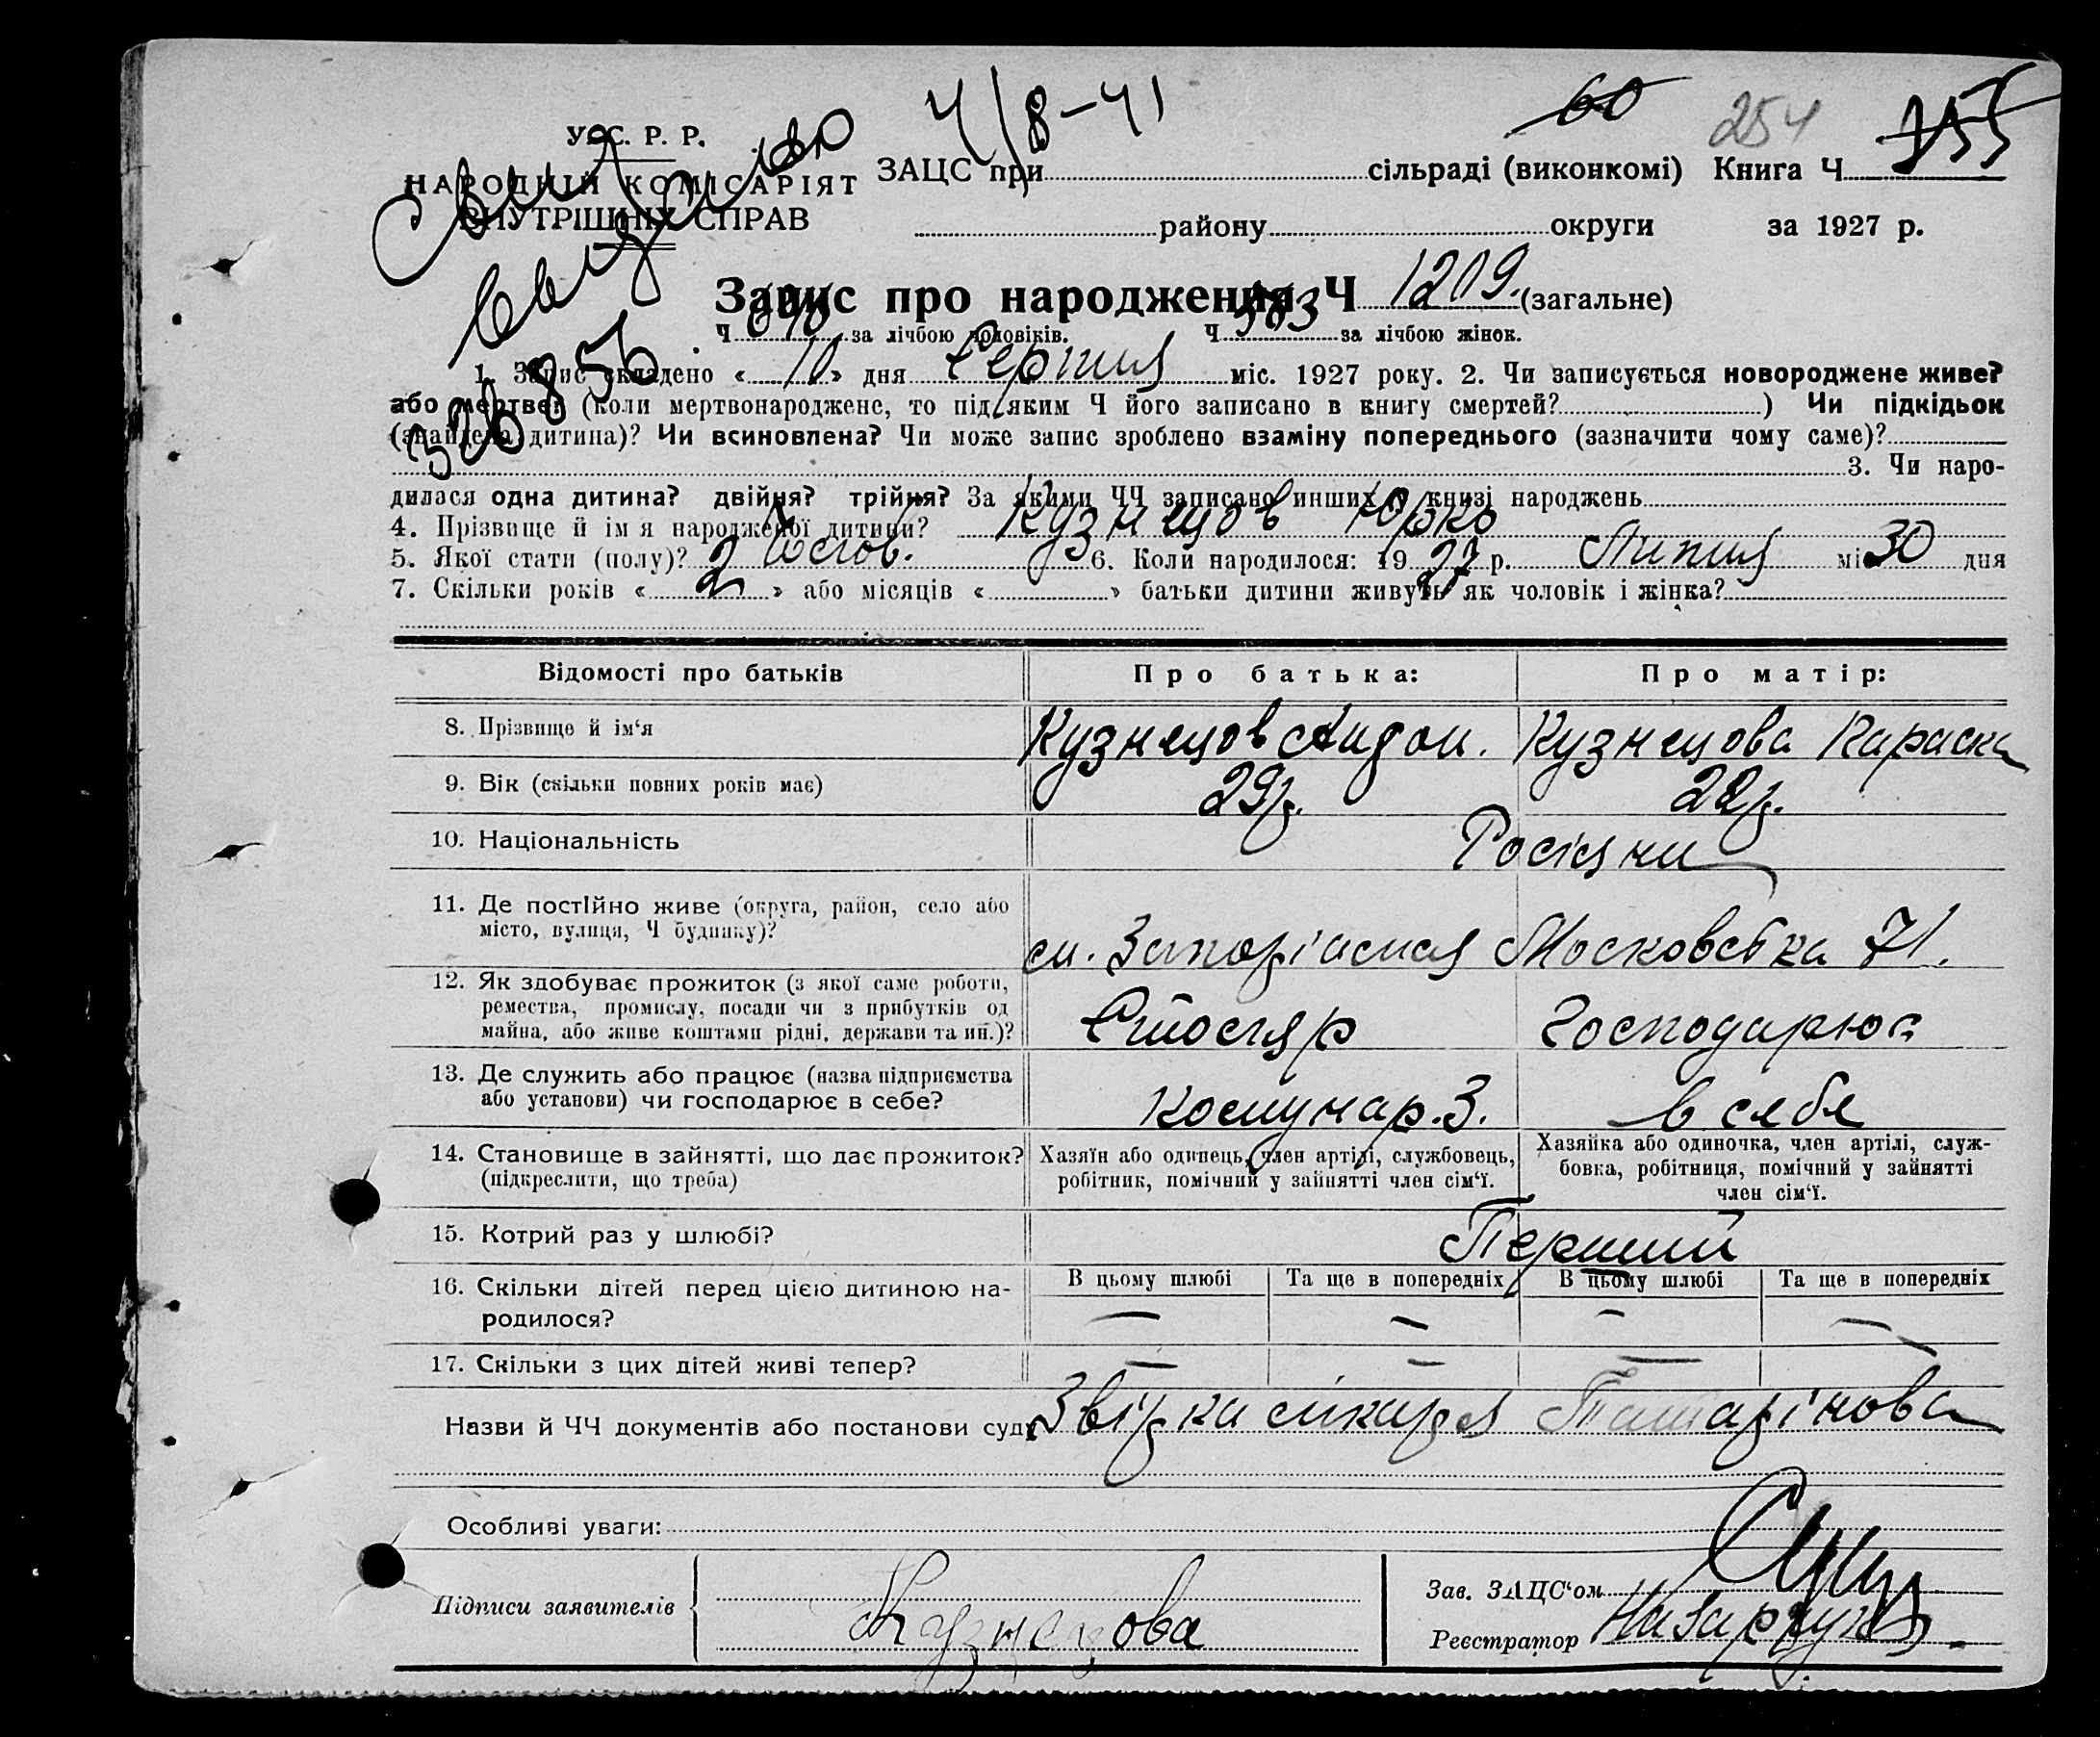 4/8-41
60 254 155
У. С. Р. Р.
НАРОДНІЙ КОМІСАРІЯТ
ВНУТРІШНІХ СПРАВ
ЗАЦС при сільраді (виконкомі) Книга Ч
району округи за 1927 р.
328856
Запис про народження Ч 1209. (загальне)
Ч за лічбою чоловіків. Ч 563 за лічбою жінок.
1. Запис складено « 10 » дня Серпня міс. 1927 року. 2. Чи записується новороджене живе?
або мертве? (коли мертвонароджене, то під яким Ч його записано в книгу смертей? ) Чи підкідьок
(знайдена дитина)? Чи всиновлена? Чи може запис зроблено взаміну попереднього (зазначити чому саме)?
3. Чи наро-
дилася одна дитина? двійня? трійня? За якими ЧЧ записано инших в книзі народжень
4. Прізвище й ім я народженої дитини? Кузнецов Юрко
5. Якої стати (полу)? 6. Коли народилося: 19 27 р. Липня міс 30 дня
7. Скільки років « 2 » або місяців « » батьки дитини живуть як чоловік і жінка?
Відомості про батьків Про батька: Про матір:
8. Прізвище й ім‘я Кузнецов Кузнецова Параска
9. Вік (скільки повних років має) 29р. 22р.
10. Національність Росіяни
11. Де постійно живе (округа, район, село або
місто, вулиця, Ч будинку)? Московська 71.
12. Як здобуває прожиток (з якої саме роботи,
ремества, промислу, посади чи з прибутків од
майна, або живе коштами рідні, держави та ин.)? Столяр Господарює
13. Де служить або працює (назва підприємства
або установи) чи господарює в себе? Комунар. З. в себе
14. Становище в зайнятті, що дає прожиток?
(підкреслити, що треба)
Хазяїн або одинець, член артілі, службовець,
робітник, помічний у зайнятті член сім‘ї.
Хазяйка або одиночка, член артілі, служ-
бовка, робітниця, помічний у зайнятті
член сім‘ї.
15. Котрий раз у шлюбі? Перший
16. Скільки дітей перед цією дитиною на-
родилося?
В цьому шлюбі Та ще в попередніх В цьому шлюбі Та ще в попередніх
— — — —
17. Скільки з цих дітей живі тепер? — — — —
Назви й ЧЧ документів або постанови суду Звірка лікаря
Особливі уваги:
Підписи заявителів Кузнецова
Зав. ЗАЦС‘ом
Реєстратор